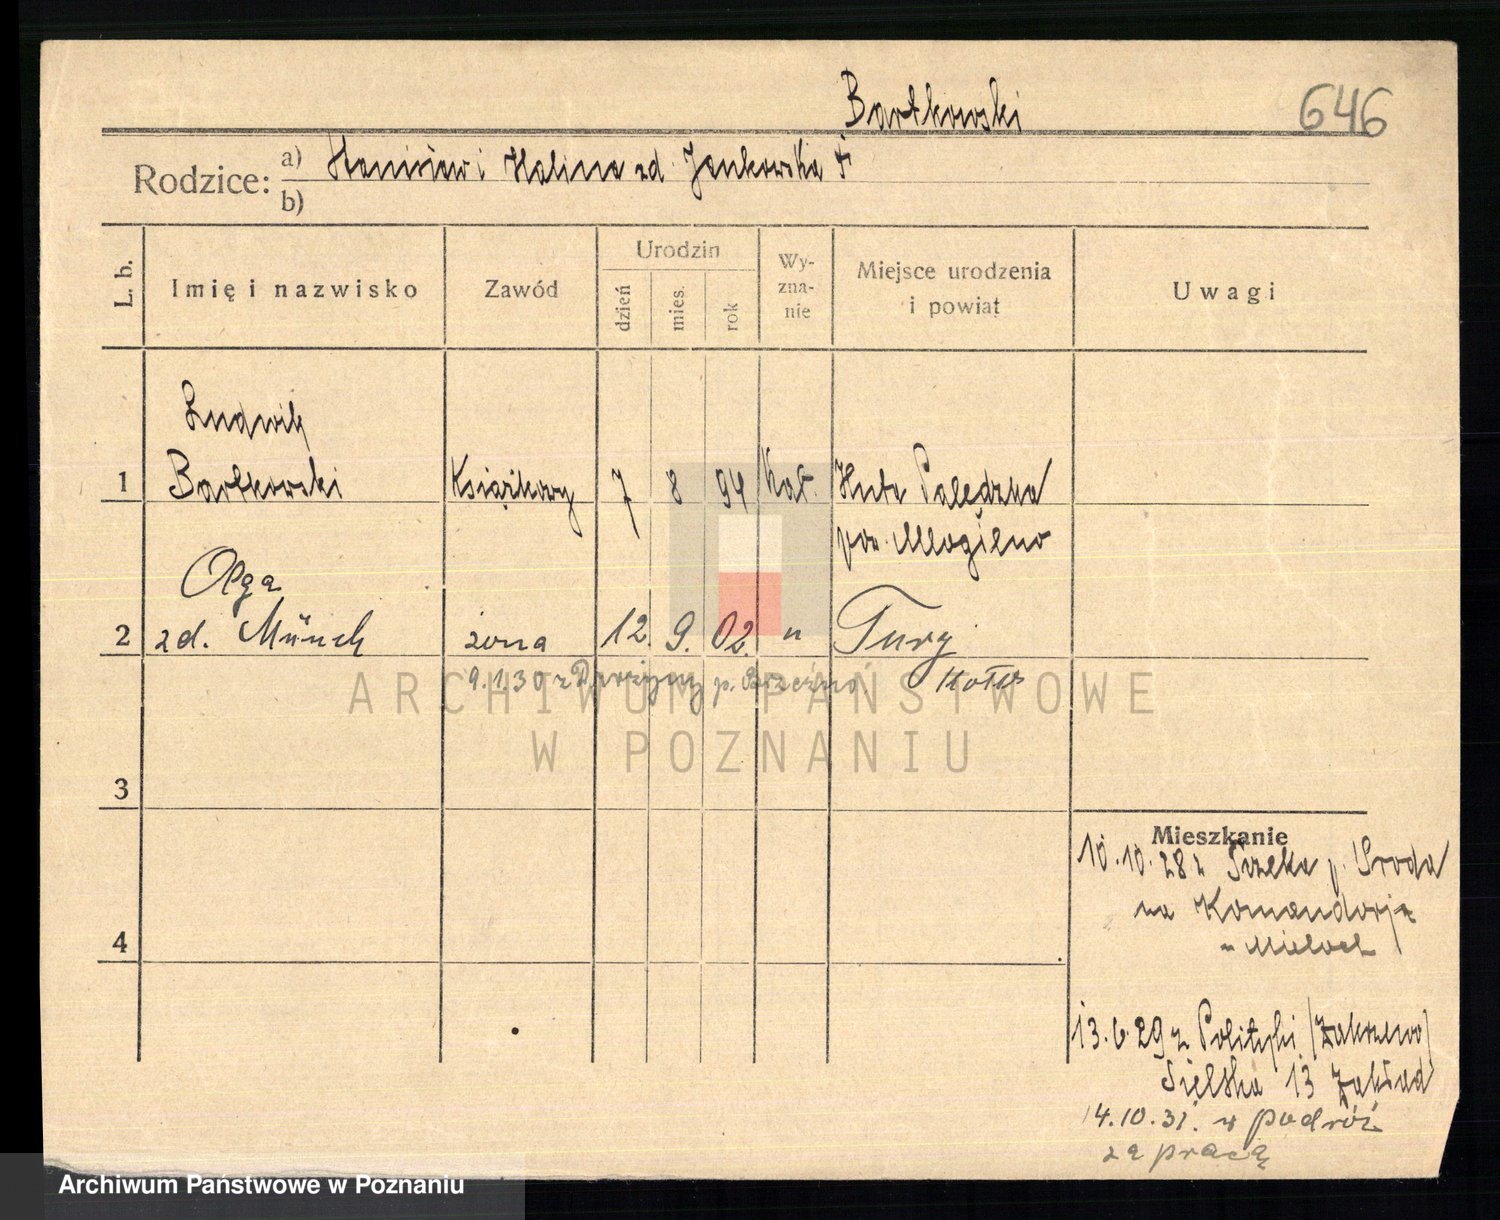 Bartkowski
646
Rodzice:
a) Stanisław i Halina zd. Jankowska †
b)
L. b.
Imię i nazwisko
Zawód
Urodzin
dzień
mies.
rok
Wy-
zna-
nie
Miejsce urodzenia
i powiat
Uwagi
Ludwik
1 Bartkowski Książkowy 7 8 94 Kat. Huta Palędzka
pow. Mogilno
Olga
2 zd. Münch żona 12. 9. 02. " Tury
9.1.30 z p. Koło
3
Mieszkanie
10.10.28 z p. Środa
na Komandorję
u Mieloch
4
13.6.29 z (Zakrzewo)
Sielska 13 Zakład
14.10.31. w podróż
za pracą
ARCHIWUM PAŃSTWOWE
W POZNANIU
Archiwum Państwowe w Poznaniu